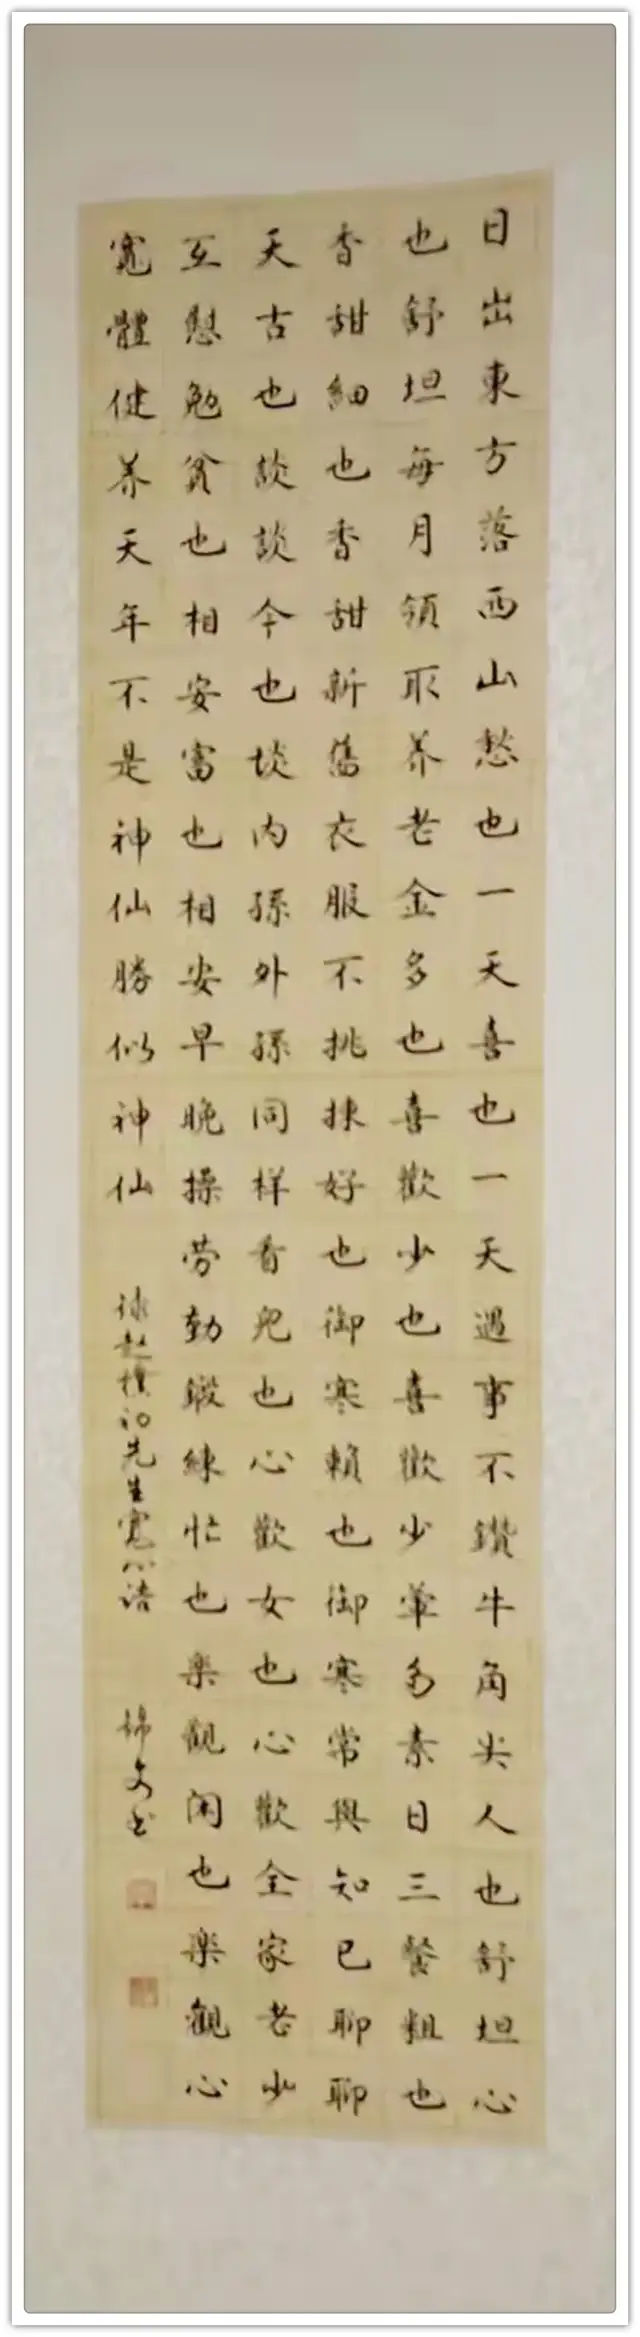 日出東方落西山愁也一天喜也一天遇事不鑽牛角尖人也舒坦心
也舒坦每月領取养老金多也喜歡少也喜歡少葷多素日三餐粗也
香甜細也香甜新舊衣服不挑揀好也御寒賴也御寒常與知己聊聊
天古也談談今也談内孫外孫同样看兒也心歡女也心歡全家老少
互慰勉貧也相安富也相安早晚操劳勤鍛練忙也樂觀闲也樂觀心
寬體健养天年不是神仙勝似神仙
录赵樸初先生寬心语
錦文书